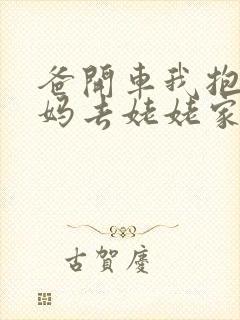 爸開車我抱
妈去姥姥家
古賀慶